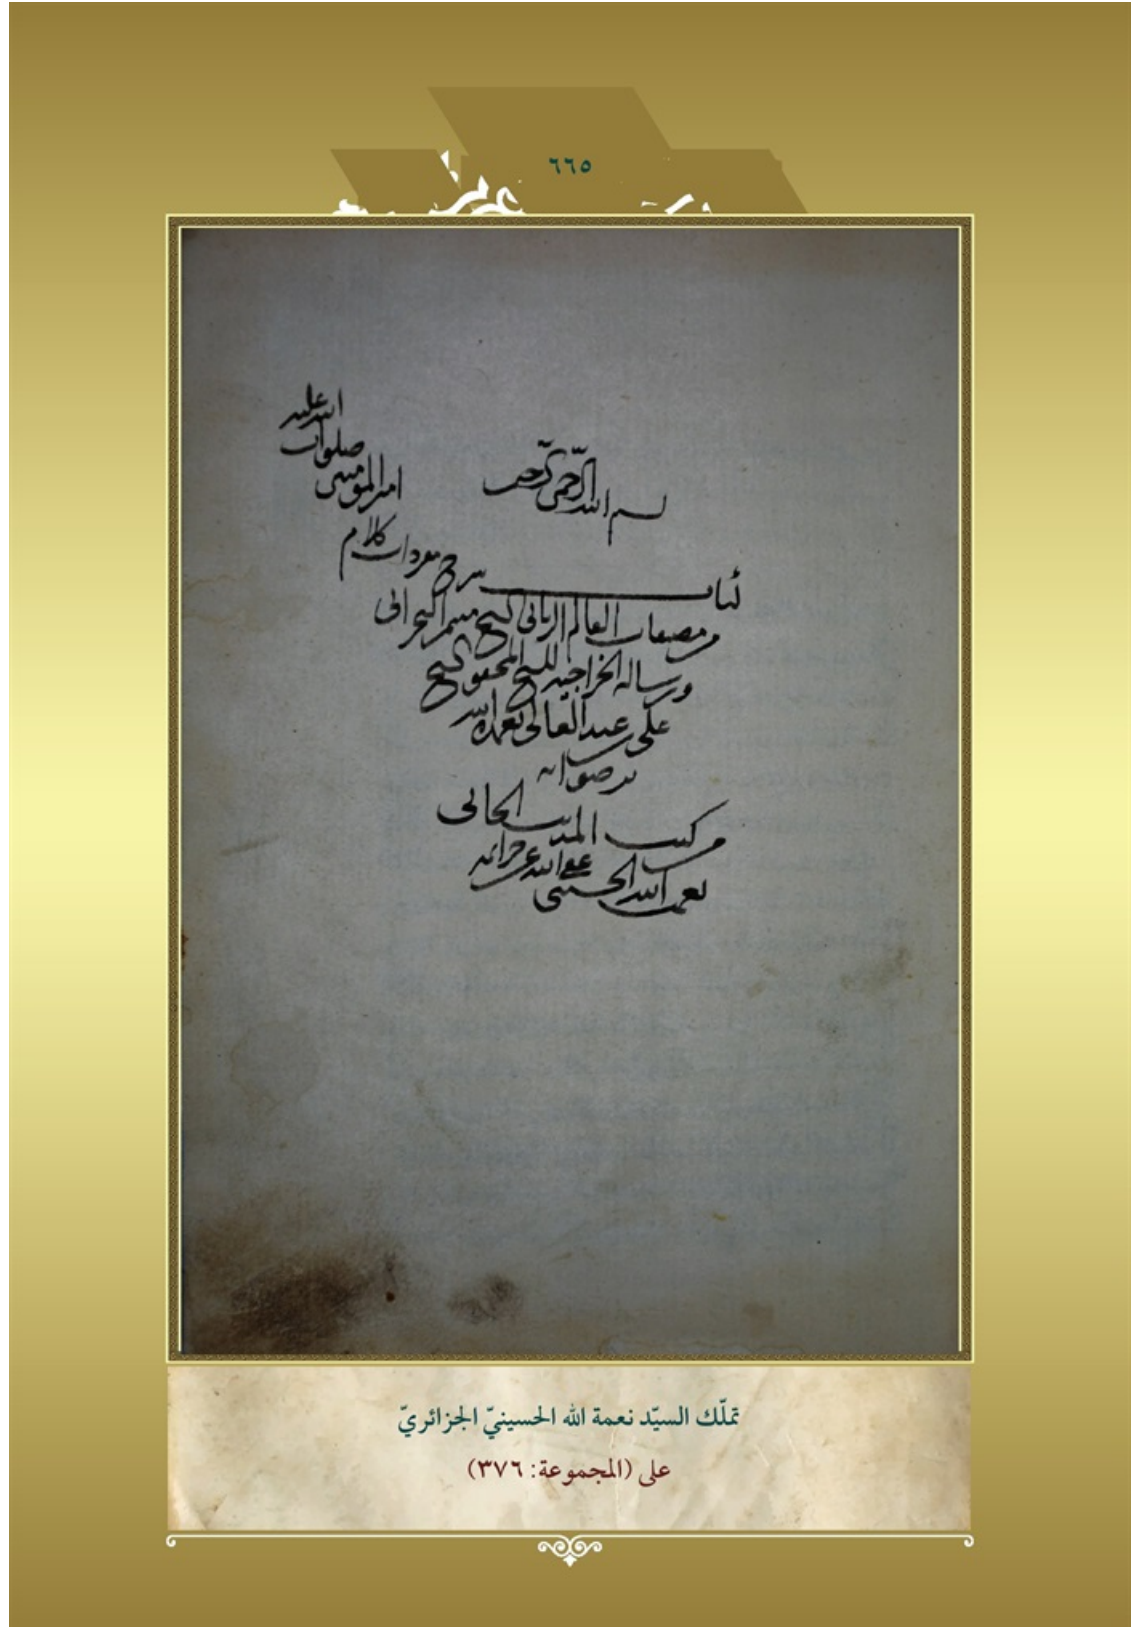 ٦٦٥
بسم الله الرحمن الرحيم
كتاب شرح مفردات كلام
امير المومنين
صلوات
الله عليه
من مصنفات العالم الرباني الشيخ ميثم البحراني
ورسالة الخراجيه للشيخ المحقق الشيخ
علي عبد العالي تغمده الله
برضوانه
من كتب المذنب الجاني
نعمة الله الحسيني عفى الله عن جرائمه
تملّك السيّد نعمة الله الحسينيّ الجزائريّ
على (المجموعة: ٣٧٦)